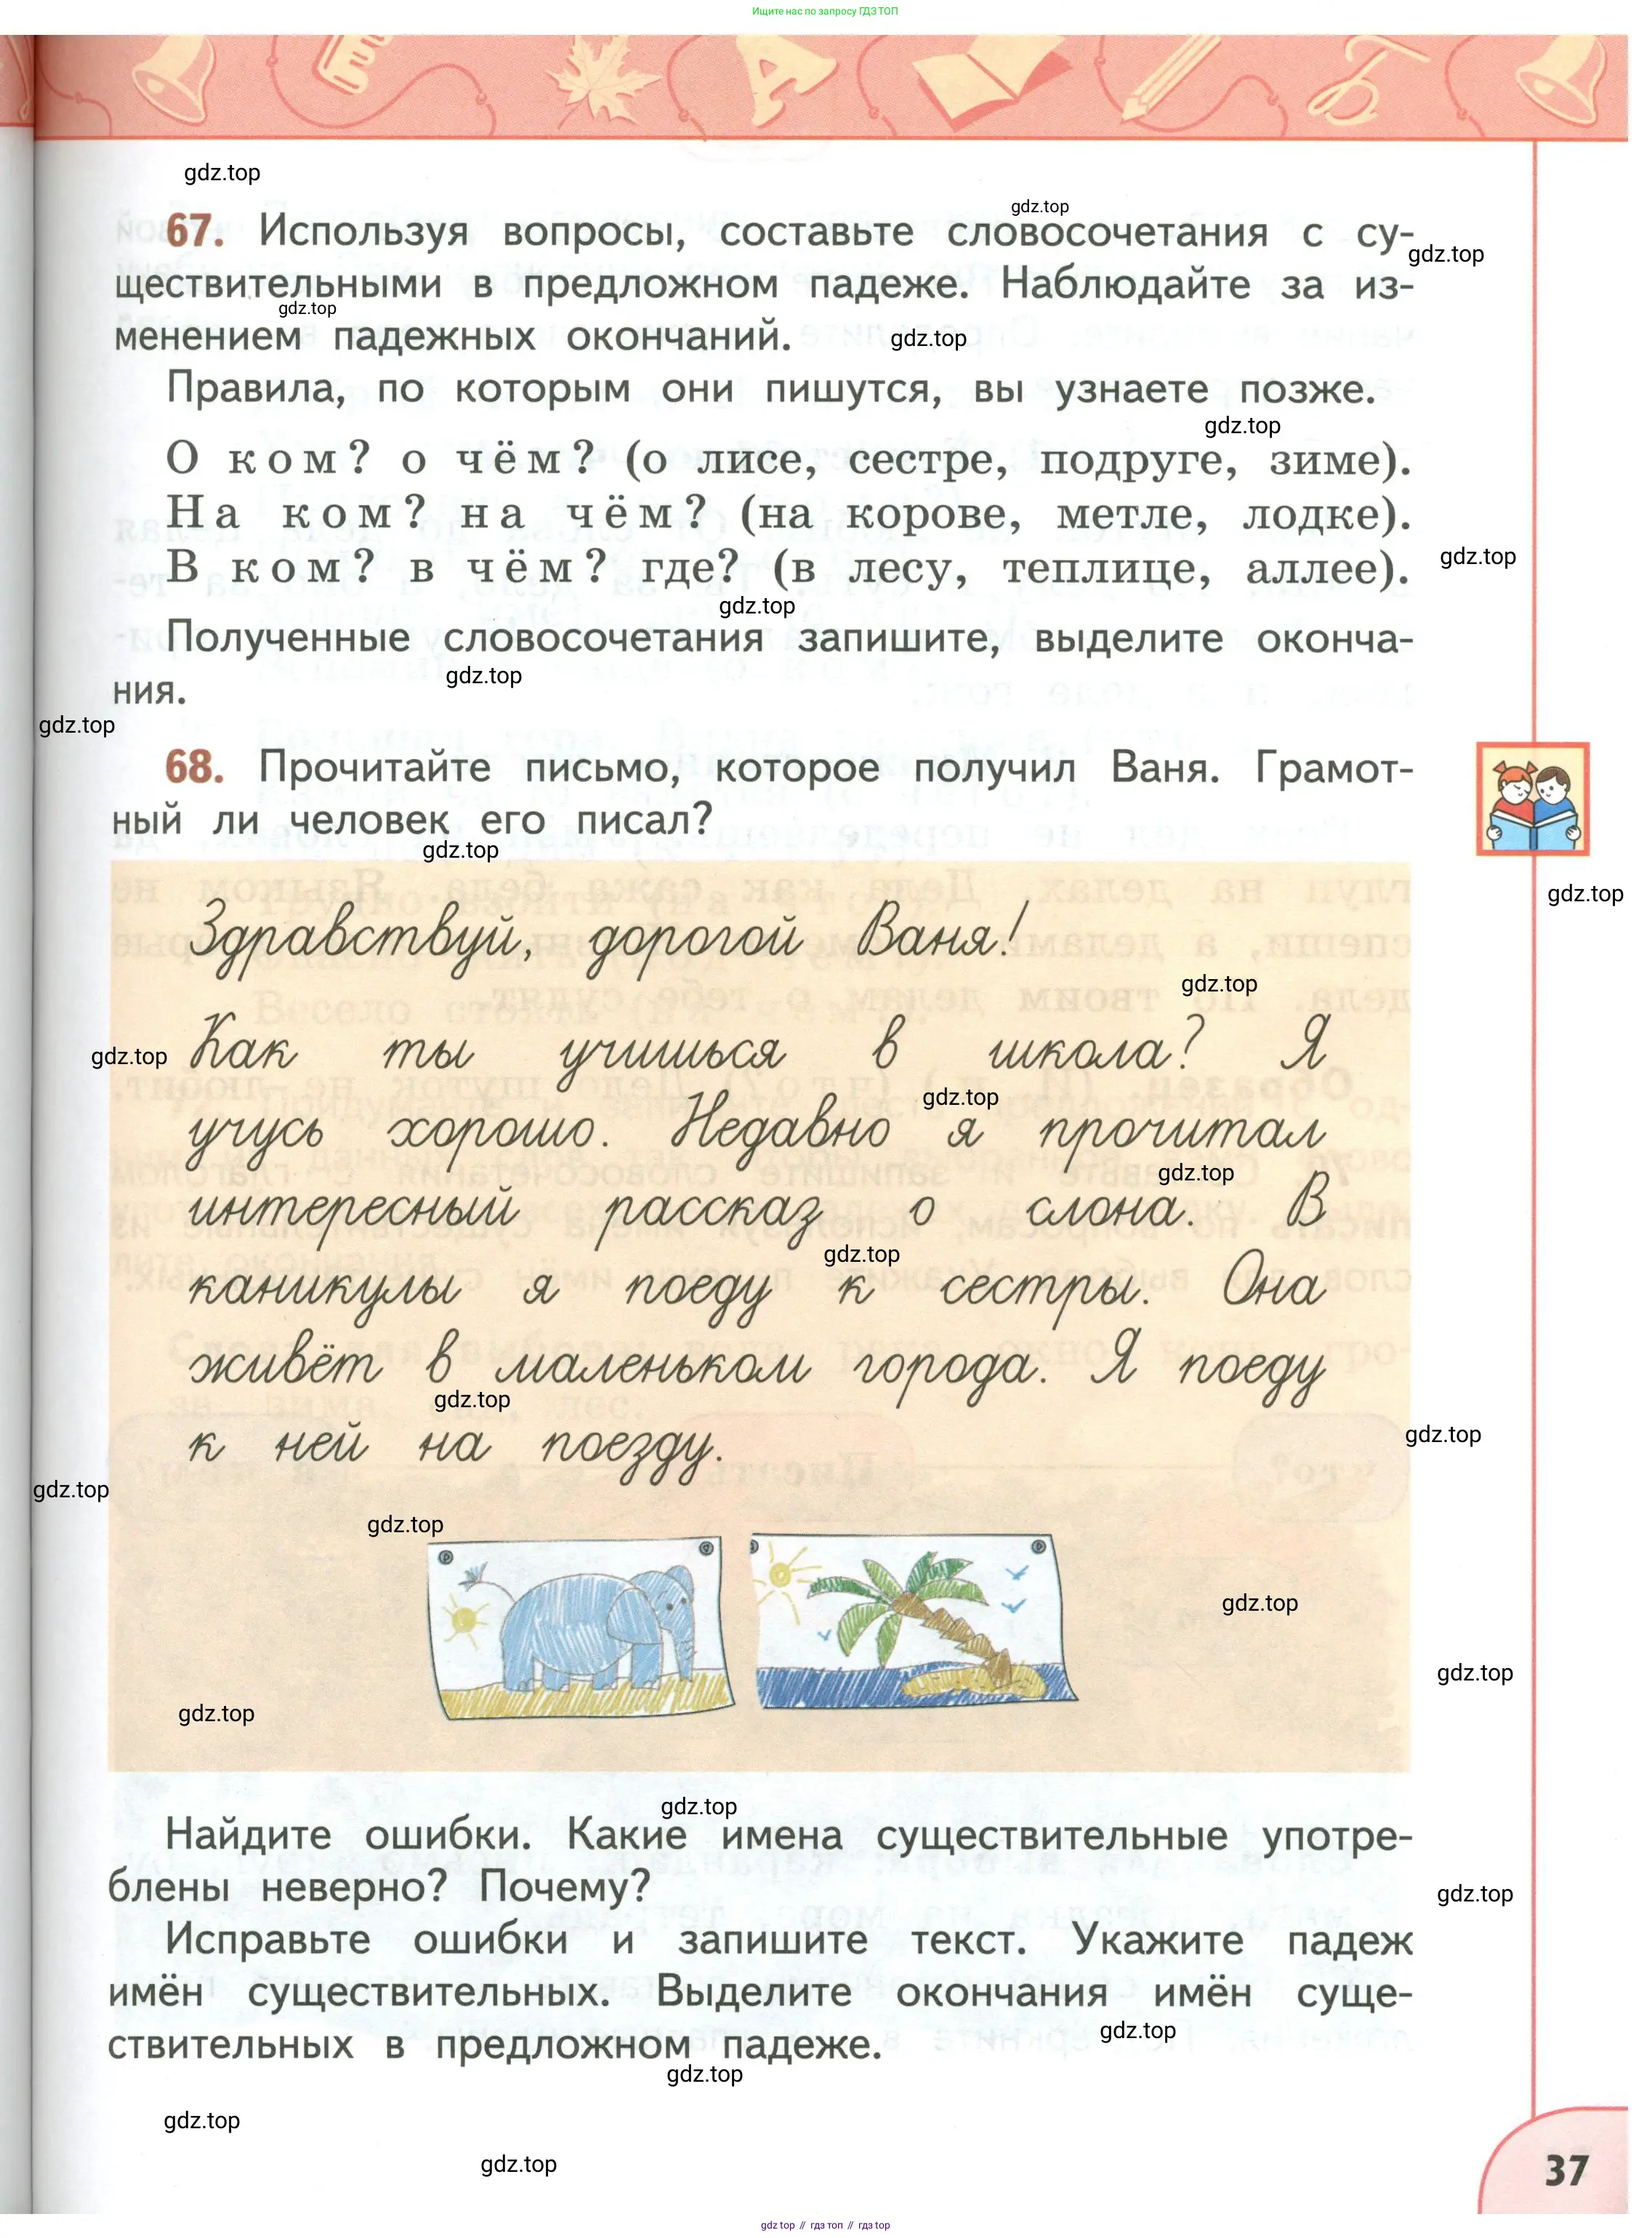 Ищите нас по запросу ГДЗ ТОП
gdz.top
gdz.top
67. Используя вопросы, составьте словосочетания с су-
gdz.top
ществительными в предложном падеже. Наблюдайте за из-
gdz.top
менением падежных окончаний.
gdz.top
Правила, по которым они пишутся, вы узнаете позже.
gdz.top
О ком? о чём? (о лисе, сестре, подруге, зиме).
На ком? на чём? (на корове, метле, лодке).
В ком? в чём? где? (в лесу, теплице, аллее).
gdz.top
gdz.top
Полученные словосочетания запишите, выделите оконча-
gdz.top
ния.
gdz.top
68. Прочитайте письмо, которое получил Ваня. Грамот-
ный ли человек его писал?
gdz.top
gdz.top
Здравствуй, дорогой Ваня!
gdz.top
gdz.top
Как ты учишься в школа? Я
gdz.top
учусь хорошо. Недавно я прочитал
gdz.top
интересный рассказ о слона. В
gdz.top
каникулы я поеду к сестры. Она
живёт в маленьком города. Я поеду
gdz.top
gdz.top
к ней на поезду.
gdz.top
gdz.top
gdz.top
gdz.top
gdz.top
gdz.top
Найдите ошибки. Какие имена существительные употре-
блены неверно? Почему?
gdz.top
Исправьте ошибки и запишите текст. Укажите падеж
имён существительных. Выделите окончания имён суще-
gdz.top
ствительных в предложном падеже.
gdz.top
gdz.top
gdz.top
37
gdz top // гдз топ // гдз top